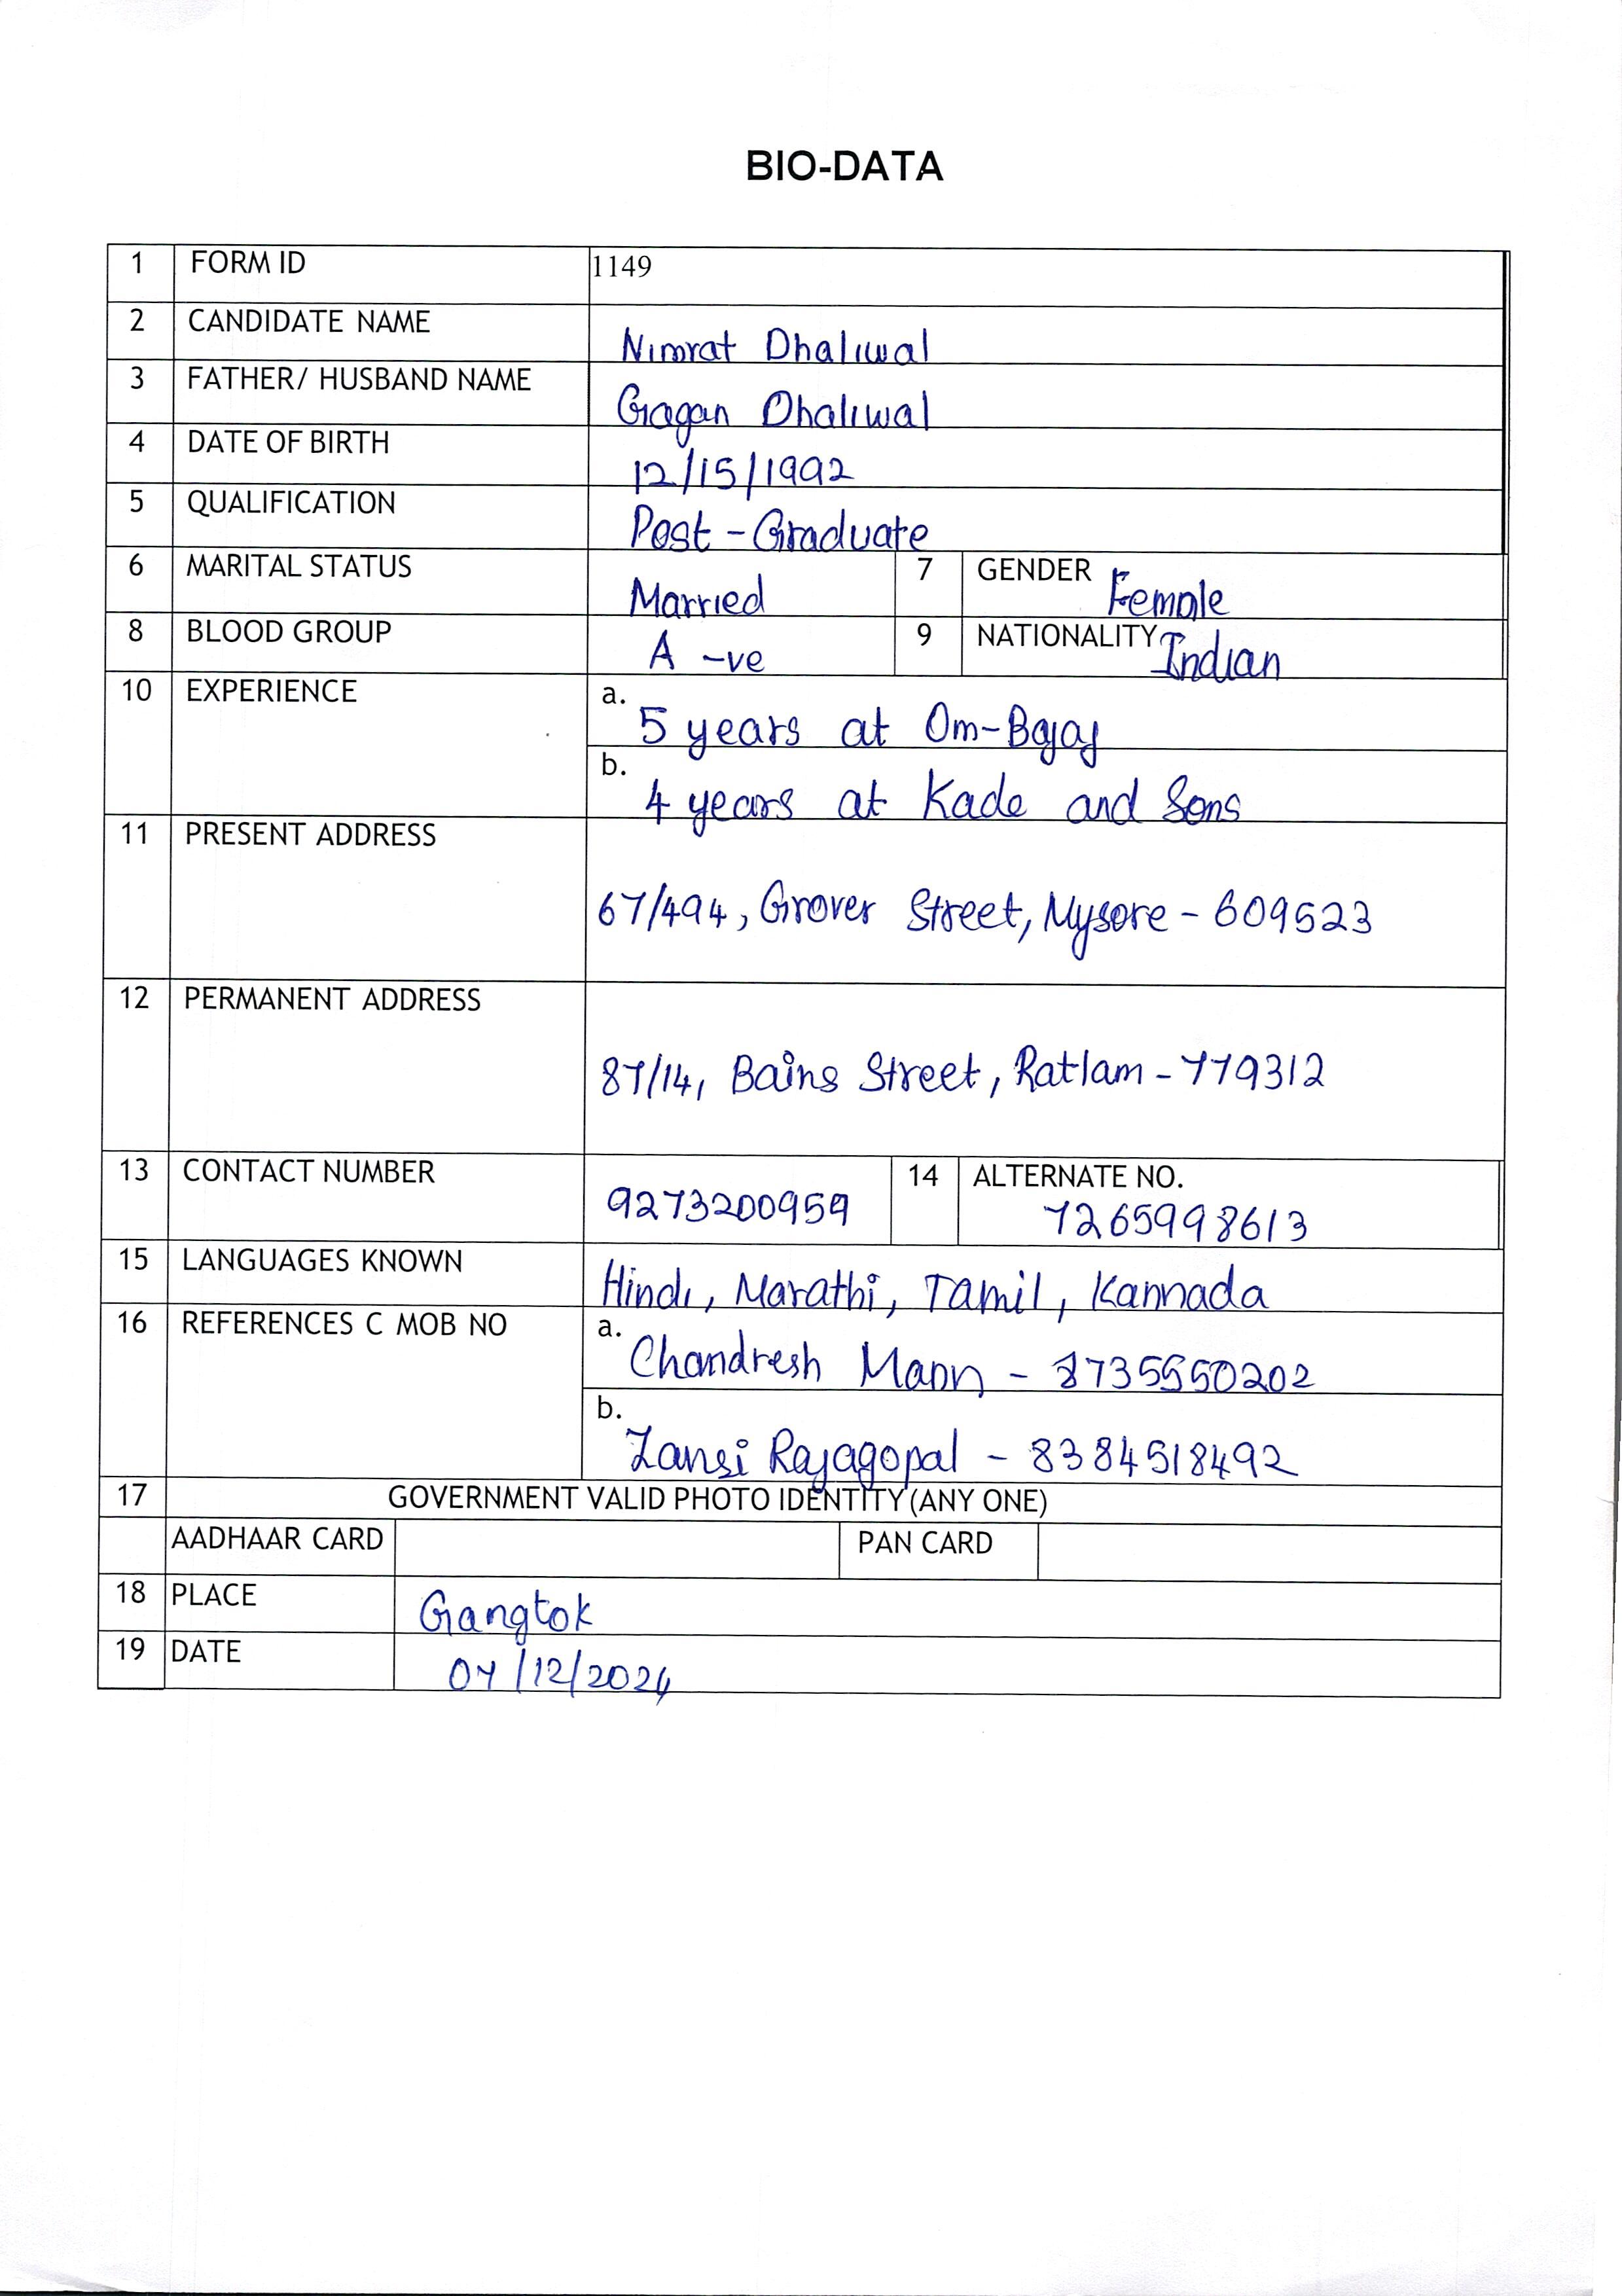 BIO-DATA
1 FORM ID 1149
2 CANDIDATE NAME Nimrat Dhaliwal
3 FATHER/ HUSBAND NAME Gagan Dhaliwal
4 DATE OF BIRTH 12/15/1992
5 QUALIFICATION Post-Graduate
6 MARITAL STATUS Married 7 GENDER Female
8 BLOOD GROUP A -ve 9 NATIONALITY Indian
10 EXPERIENCE a. 5 years at Om-Bajaj
b. 4 years at Kade and Sons
11 PRESENT ADDRESS
67/494, Grover Street, Mysore - 609523
12 PERMANENT ADDRESS
87/14, Bains Street, Ratlam - 779312
13 CONTACT NUMBER 9273200959 14 ALTERNATE NO. 7265998613
15 LANGUAGES KNOWN Hindi, Marathi, Tamil, Kannada
16 REFERENCES C MOB NO a. Chandresh Mann - 8735550202
b. Zansi Rajagopal - 8384518492
17 GOVERNMENT VALID PHOTO IDENTITY (ANY ONE)
AADHAAR CARD PAN CARD
18 PLACE Gangtok
19 DATE 07/12/2024